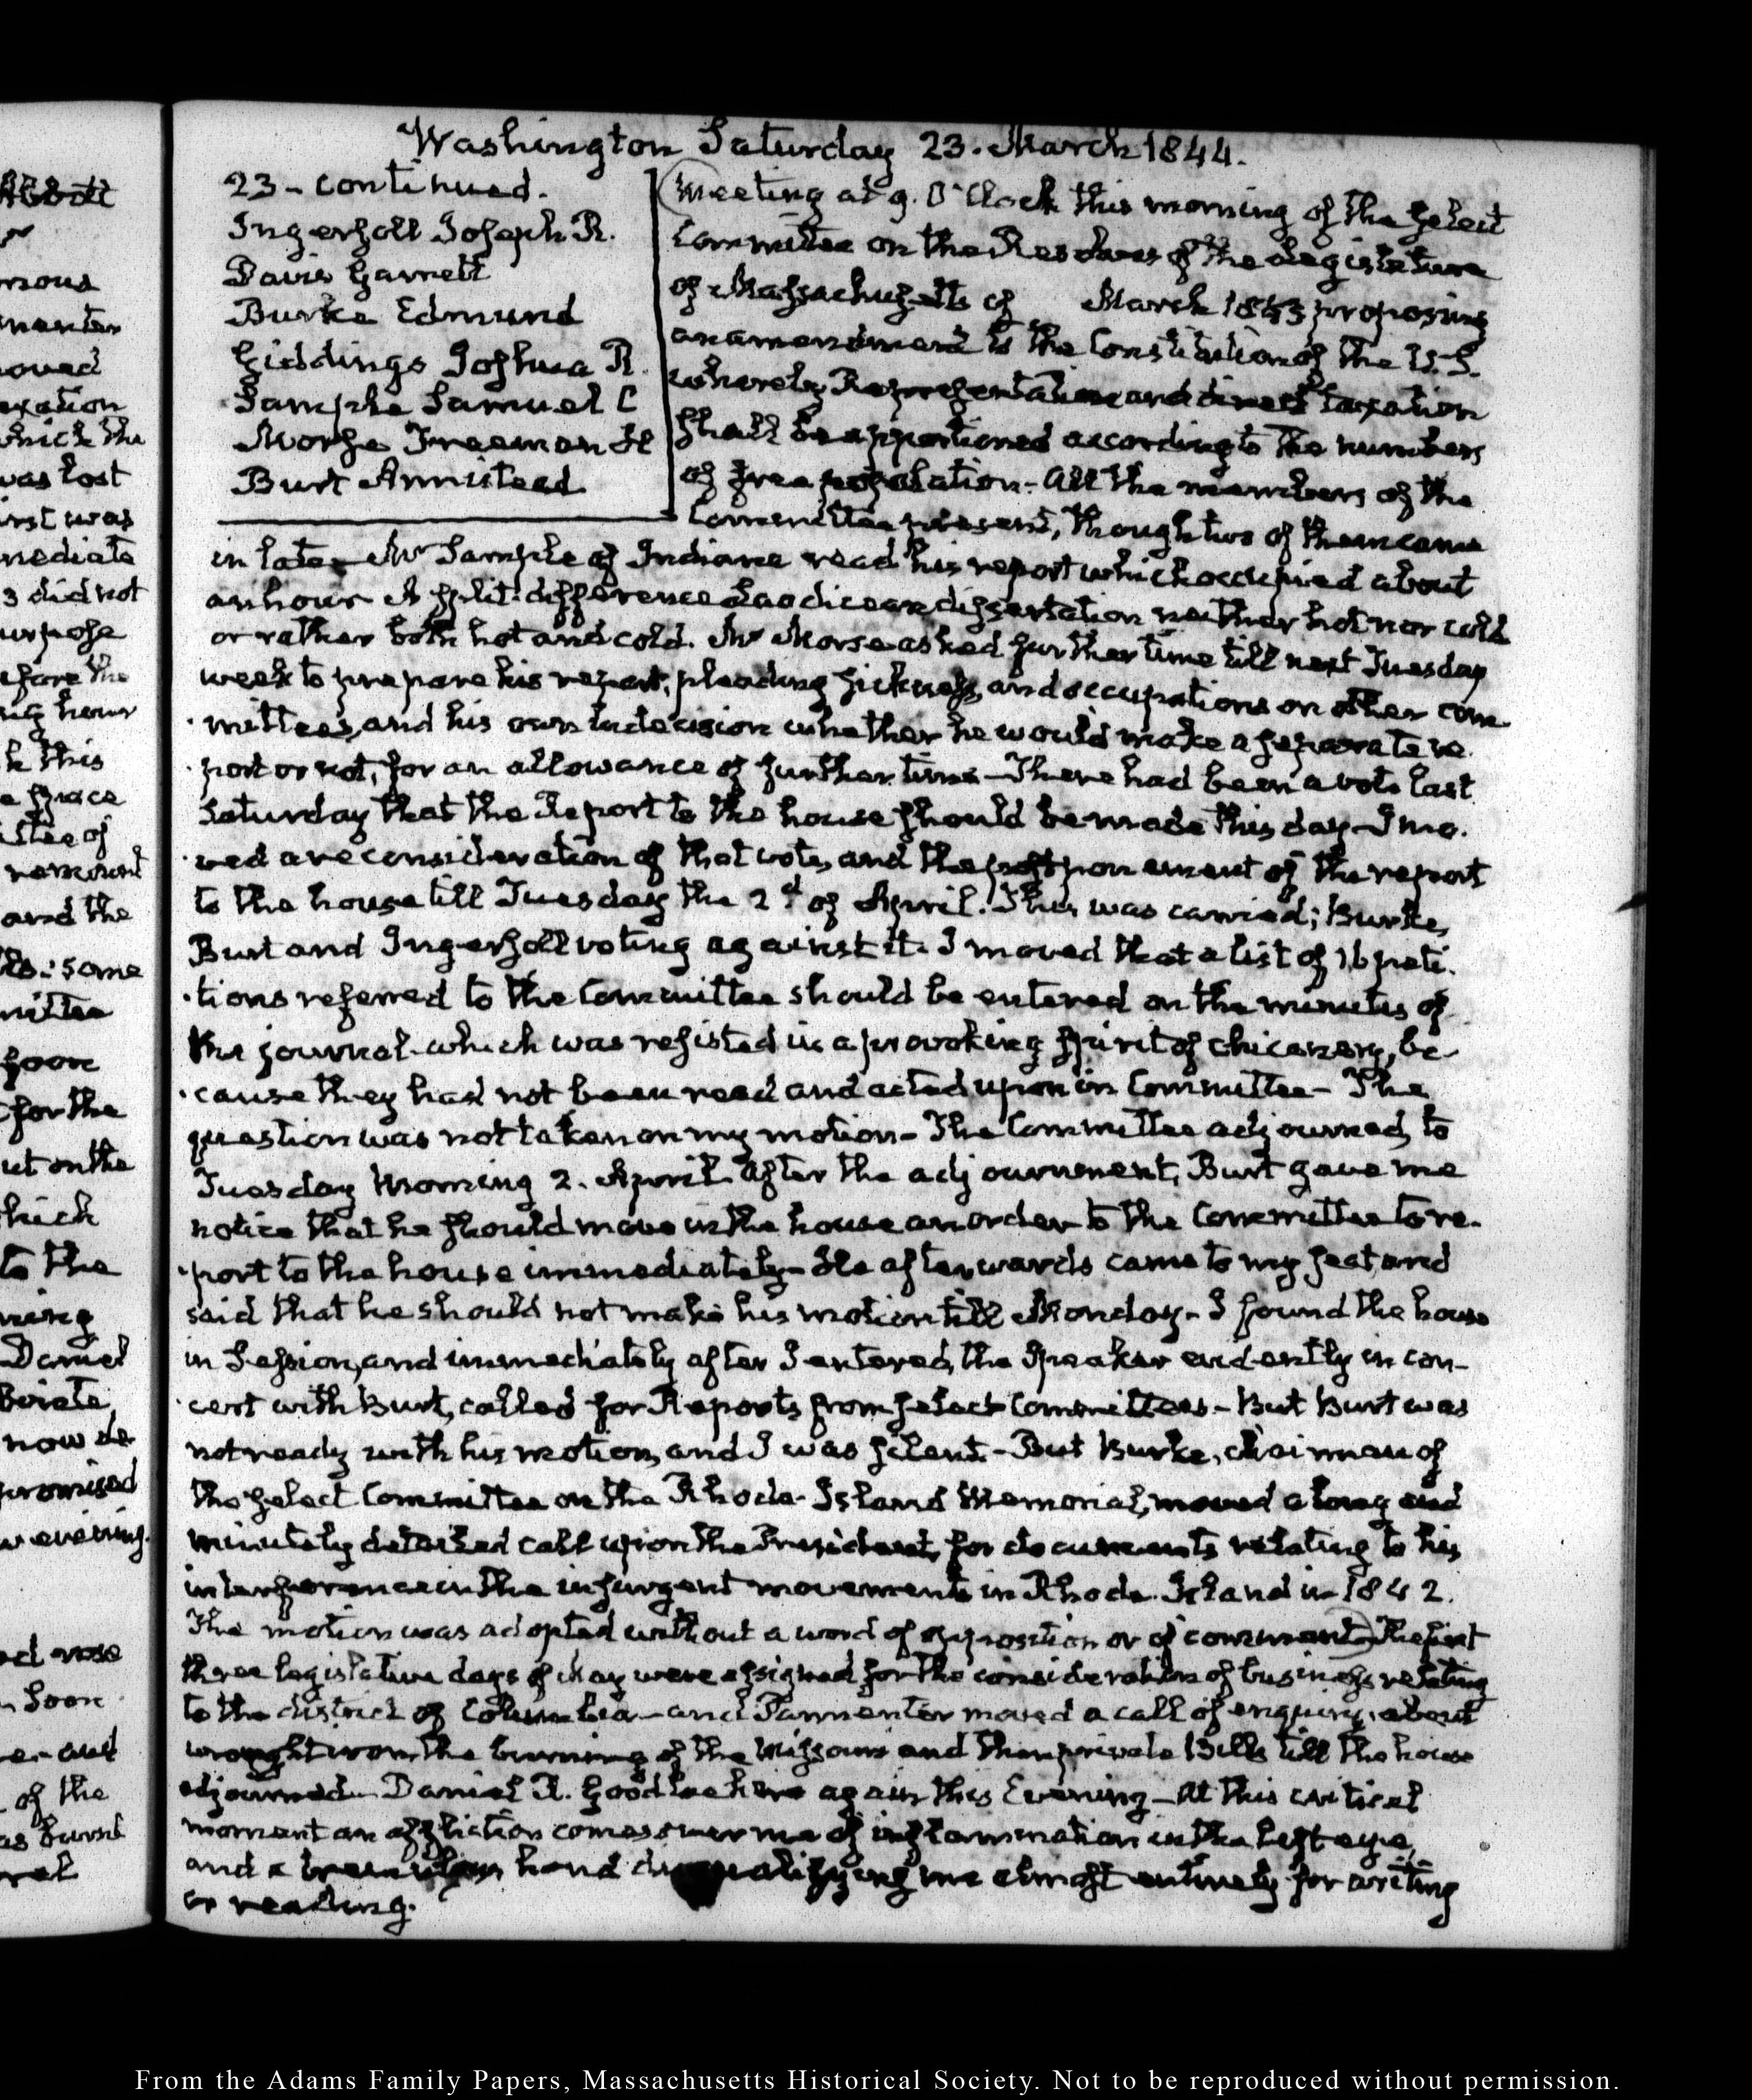 Washington Saturday 23. March 1844.
23 - continued.
Ingersoll Joseph R.
Davis Garrett
Burke Edmund
Giddings Joshua R.
Sample Samuel C
Morse Freeman H
Burt Armistead
Meeting at 9. O'Clock this morning of the select
Committee on the Resolves of the Legislature
of Massachusetts of March 1843 proposing
an amendment to the Constitution of the U.S.
whereby Representation and direct taxation
shall be apportioned according to the numbers
of free population - All the members of the
Committee present, though two of them came
in late - Mr Sample of Indiana read his report which occupied about
an hour A split-difference Laodicean dissertation neither hot nor cold
or rather both hot and cold. Mr Morse asked further time till next Tuesday
week to prepare his report, pleading sickness, and occupations on other com
mittees, and his own indecision whether he would make a separate re.
port or not, for an allowance of further time - There had been a vote last
Saturday that the Report to the house should be made this day - I mo.
ved a reconsideration of that vote, and the postponement of the report
to the house till Tuesday the 2d of April. This was carried; Burke,
Burt and Ingersoll voting against it. I moved that a list of 16 peti.
tions referred to the Committee should be entered on the minutes of
the journal. which was resisted in a provoking spirit of chicanery, be-
cause they had not been read and acted upon in Committee - The
question was not taken on my motion - The Committee adjourned, to
Tuesday Morning 2. April. After the adjournment, Burt gave me
notice that he should move in the house an order to the Committee to re.
port to the house immediately - He afterwards came to my seat, and
said that he should not make his motion till Monday - I found the house
in Session, and immediately after I entered, the Speaker evidently in con-
cert with Burt, called for Reports from select Committees - But Burt was
not ready with his motion, and I was silent. - But Burke, chairman of
the select Committee on the Rhode-Island Memorial, moved a long and
minutely detailed call upon the President, for documents relating to his
interference in the insurgent movements in Rhode-Island in 1842.
The motion was adopted without a word of opposition or of comment) The first
three legislative days of May were assigned for the consideration of business relating
to the district of Columbia - and Parmenter moved a call of enquiry, about
wrought iron, the burning of the Missouri and then private Bills till the house
adjourned - Daniel R. Goodloe here again this Evening - At this critical
moment an affliction comes over me of inflammation in the left eye,
and a tremulous hand disqualifying me almost entirely for writing
or reading.